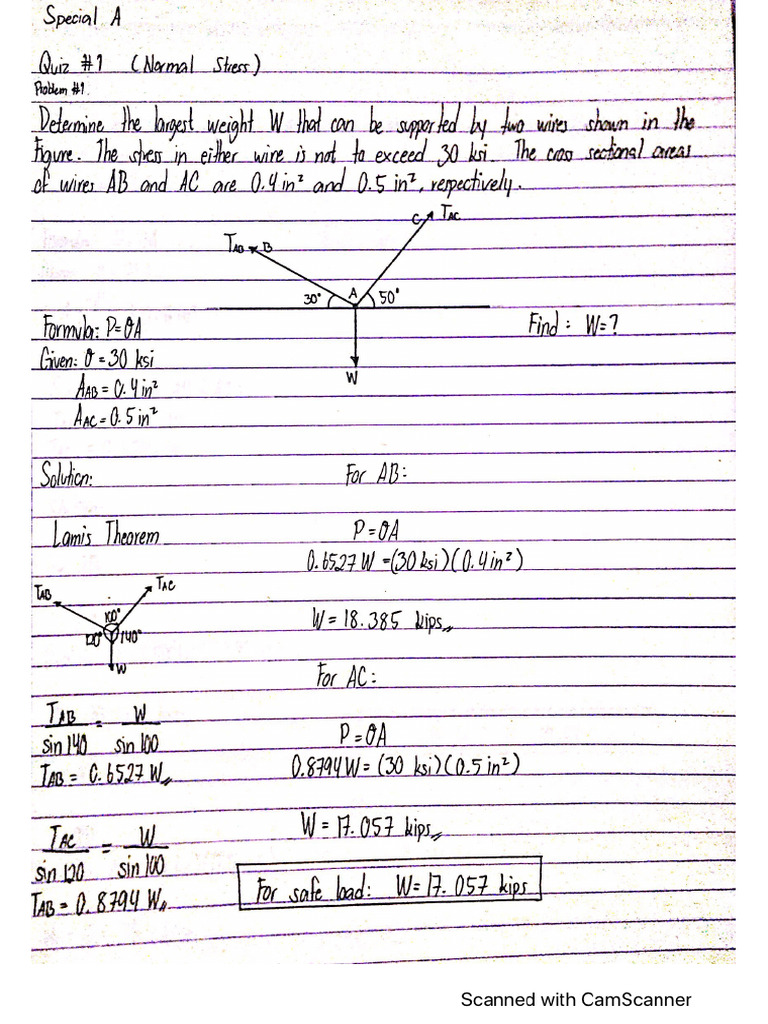 Special A
Quiz #1 (Normal Stress)
Problem #1.
Determine the largest weight W that can be supported by two wires shown in the
figure. The stress in either wire is not to exceed 30 ksi. The cross sectional areas
of wires AB and AC are 0.4 in², and 0.5 in², respectively.
C TAC
TAB B
30° A 50°
W
Formula: P=σA
Find: W=?
Given: σ = 30 ksi
AAB = 0.4 in²
AAC = 0.5 in²
Solution:
Lamis Theorem
TAB TAC
100°
120° 140°
W
TAB = W
sin 140 sin 100
TAB = 0.6527 W,,
TAC = W
sin 120 sin 100
TAB = 0.8794 W,,
For AB:
P=σA
0.6527 W = (30 ksi)(0.4 in²)
W = 18.385 kips,,
For AC:
P=σA
0.8794W = (30 ksi)(0.5 in²)
W = 17.057 kips,,
For safe load: W=17.057 kips
Scanned with CamScanner